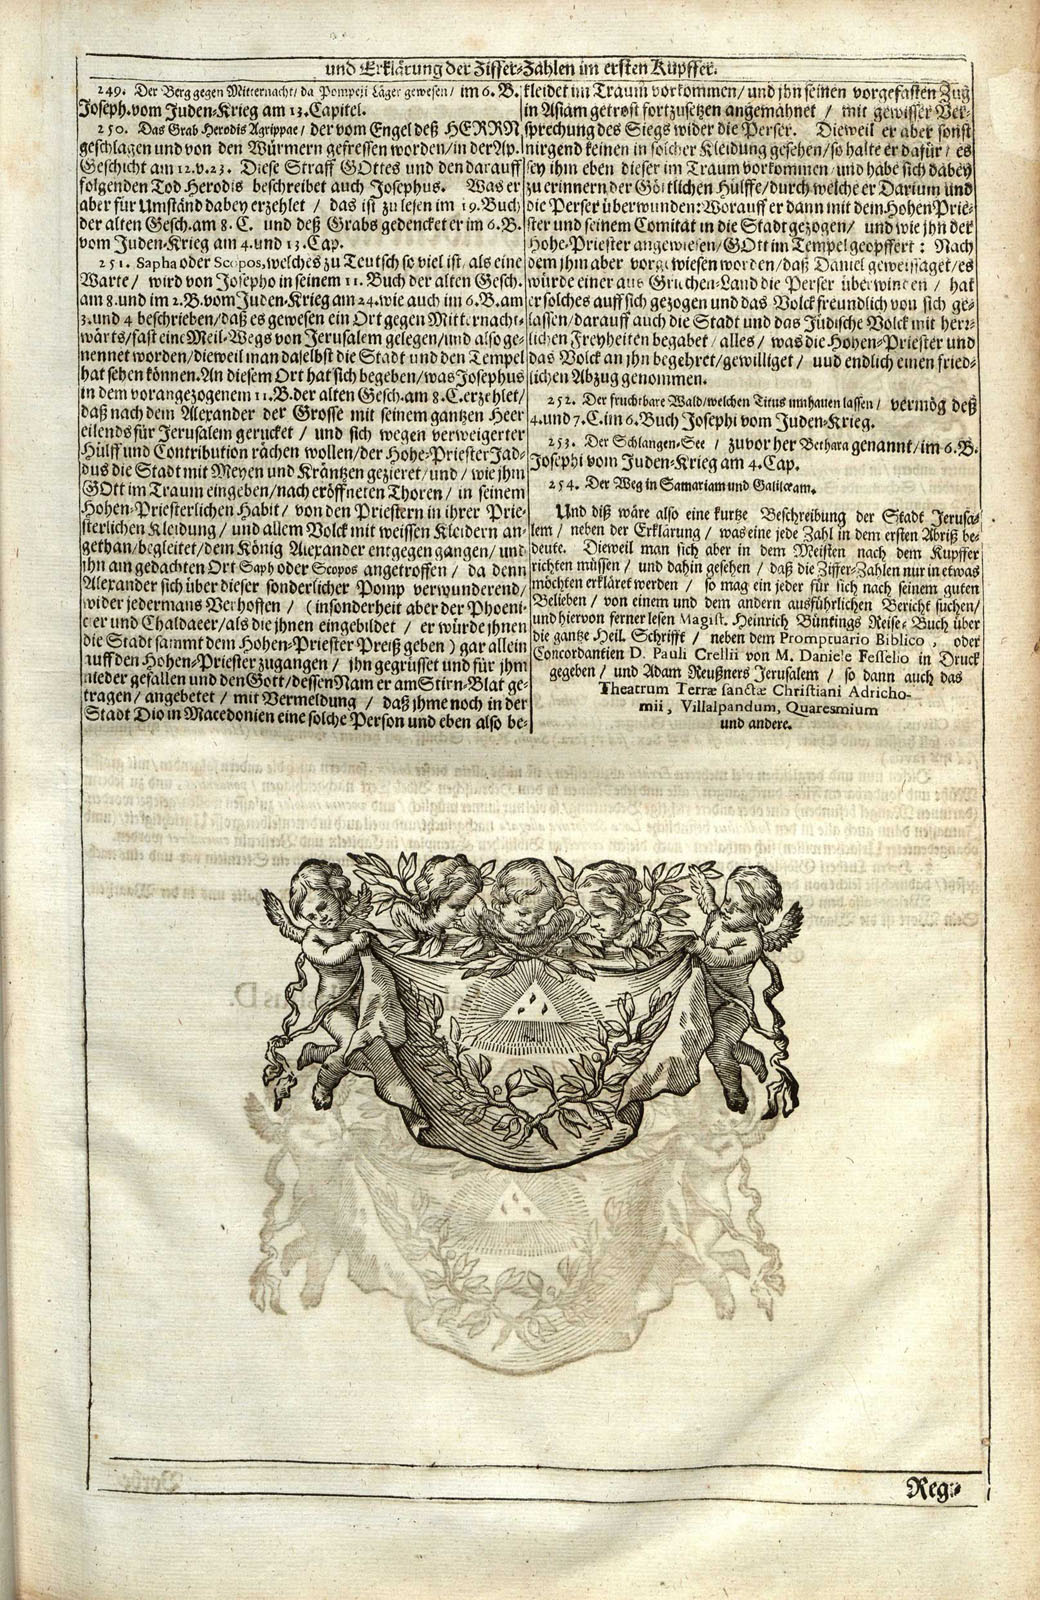 und Erklärung der Ziffer-Zahlen im ersten Kupffer.
249. Der Berg gegen Mitternacht/ da Pompeji Läger gewesen/ im 6. B.
Joseph. vom Juden-Krieg am 13. Capitel.
250. Das Grab Herodis Agrippae/ der vom Engel deß HERRN
geschlagen und von den Würmern gefressen worden/ in der Ap.
Geschicht am 12. v. 23. Diese Straff GOttes und den darauff
folgenden Tod Herodis beschreibet auch Josephus. Was er
aber für Umständ dabey erzehlet / das ist zu lesen im 19. Buch
der alten Gesch. am 8. C. und deß Grabs gedencket er im 6. B.
vom Juden-Krieg am 4. und 13. Cap.
251. Sapha oder Scopos, welches zu Teutsch so viel ist/ als eine
Warte / wird von Josepho in seinem 11. Buch der alten Gesch.
am 8. und im 2. B. vom Juden-Krieg am 24. wie auch im 6. B. am
3. und 4 beschrieben/ daß es gewesen ein Ort gegen Mitternacht-
wärts/ fast eine Meil-Wegs von Jerusalem gelegen/ und also ge-
nennet worden/ dieweil man daselbst die Stadt und den Tempel
hat sehen können. An diesem Ort hat sich begeben/ was Josephus
in dem vorangezogenem 11. B. der alten Gesch. am 8. C. erzehlet/
daß nach dem Alexander der Grosse mit seinem gantzen Heer
eilends für Jerusalem gerucket / und sich wegen verweigerter
Hülff und Contribution rächen wollen/ der Hohe-Priester Jad-
dus die Stadt mit Meyen und Kräntzen gezieret/ und / wie jhn
GOtt im Traum eingeben/ nach eröffneten Thoren / in seinem
Hohen-Priesterlichen Habit / von den Priestern in ihrer Prie-
sterlichen Kleidung / und allem Volck mit weissen Kleidern an-
gethan/ begleitet/ dem König Alexander entgegen gangen / und
jhn am gedachten Ort Saph oder Scopos angetroffen / da denn
Alexander sich über dieser sonderlicher Pomp verwunderend/
wider jedermans Verhoffen / (insonderheit aber der Phoeni-
cier und Chaldaeer/ als die jhnen eingebildet / er würde jhnen
die Stadt sammt dem Hohen-Priester Preiß geben) gar allein
auff den Hohen-Priester zugangen / jhn gegrüsset und für jhm
nieder gefallen und den Gott/ dessen Nam er am Stirn-Blat ge-
tragen/ angebetet / mit Vermeldung / daß jhme noch in der
Stadt Dio in Macedonien eine solche Person und eben also be-
kleidet im Traum vorkommen/ und jhn seinen vorgefasten Zug
in Asiam getrost fortzusetzen angemahnet / mit gewisser Ver-
sprechung des Siegs wider die Perser. Dieweil er aber sonst
nirgend keinen in solcher Kleidung gesehen/ so halte er dafür / es
sey ihm eben dieser im Traum vorkommen/ und habe sich dabey
zu erinnern der Göttlichen Hülffe/ durch welche er Darium und
die Perser überwunden: Worauff er dann mit dem Hohen Prie-
ster und seinem Comitat in die Stadt gezogen/ und wie jhn der
Hohe-Priester angewiesen/ GOtt im Tempel geopffert: Nach
dem jhm aber vorgewiesen worden/ daß Daniel geweissaget/ es
würde einer aus Griechen-Land die Perser überwinden / hat
er solches auff sich gezogen und das Volck freundlich von sich ge-
lassen/ darauff auch die Stadt und das Jüdische Volck mit herr-
lichen Freyheiten begabet / alles / was die Hohen-Priester und
das Volck an jhn begehret/ gewilliget / uud endlich einen fried-
lichen Abzug genommen.
252. Der fruchtbare Wald/ welchen Titus umhauen lassen / vermög deß
4. und 7. C. im 6. Buch Josephi vom Juden-Krieg.
253. Der Schlangen-See / zuvor her Bethara genannt/ im 6. B.
Josephi vom Juden-Krieg am 4. Cap.
254. Der Weg in Samariam und Galilæam.
Und diß wäre also eine kurtze Beschreibung der Stadt Jerusa-
lem / neben der Erklärung / was eine jede Zahl in dem ersten Abriß be-
deute. Dieweil man sich aber in dem Meisten nach dem Kupffer
richten müssen / und dahin gesehen / daß die Ziffer-Zahlen nur in etwas
möchten erkläret werden / so mag ein jeder für sich nach seinem guten
Belieben / von einem und dem andern ausführlichen Bericht suchen/
und hiervon ferner lesen Magist. Heinrich Büntings Reise-Buch über
die gantze Heil. Schrifft / neben dem Promptuario Biblico , oder
Concordantien D. Pauli Crellii von M. Daniele Fesselio in Druck
gegeben / und Adam Reußners Jerusalem / so dann auch das
Theatrum Terræ sanctæ Christiani Adricho-
mii, Villalpandum, Quaresmium
und andere.
Reg-